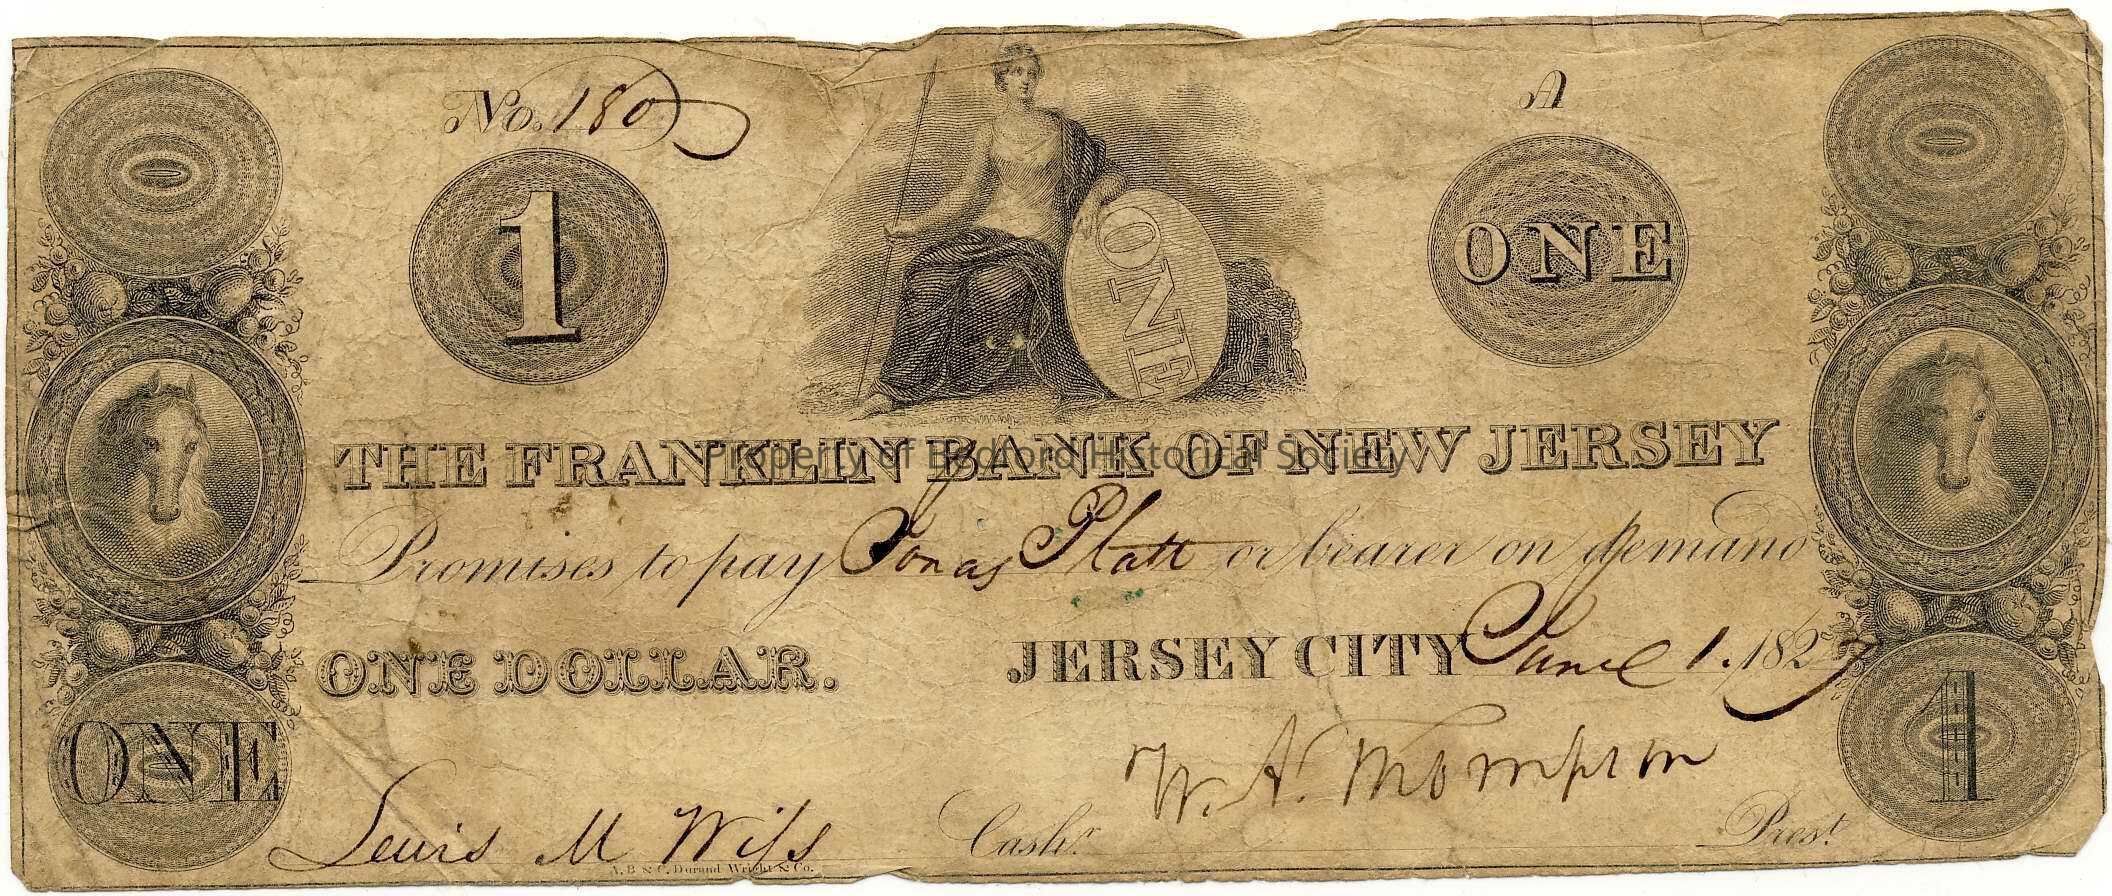 No. 180
A
1
ONE
ONE
THE FRANKLIN BANK OF NEW JERSEY
Property of Bedford Historical Society
Promises to pay Jonas Platt or bearer on demand
ONE DOLLAR. JERSEY CITY June 1. 1827
ONE
1
W. A. Thompson
Lewis M Wiss Cashr. Prest.
A. B & C. Durand Wright & Co.